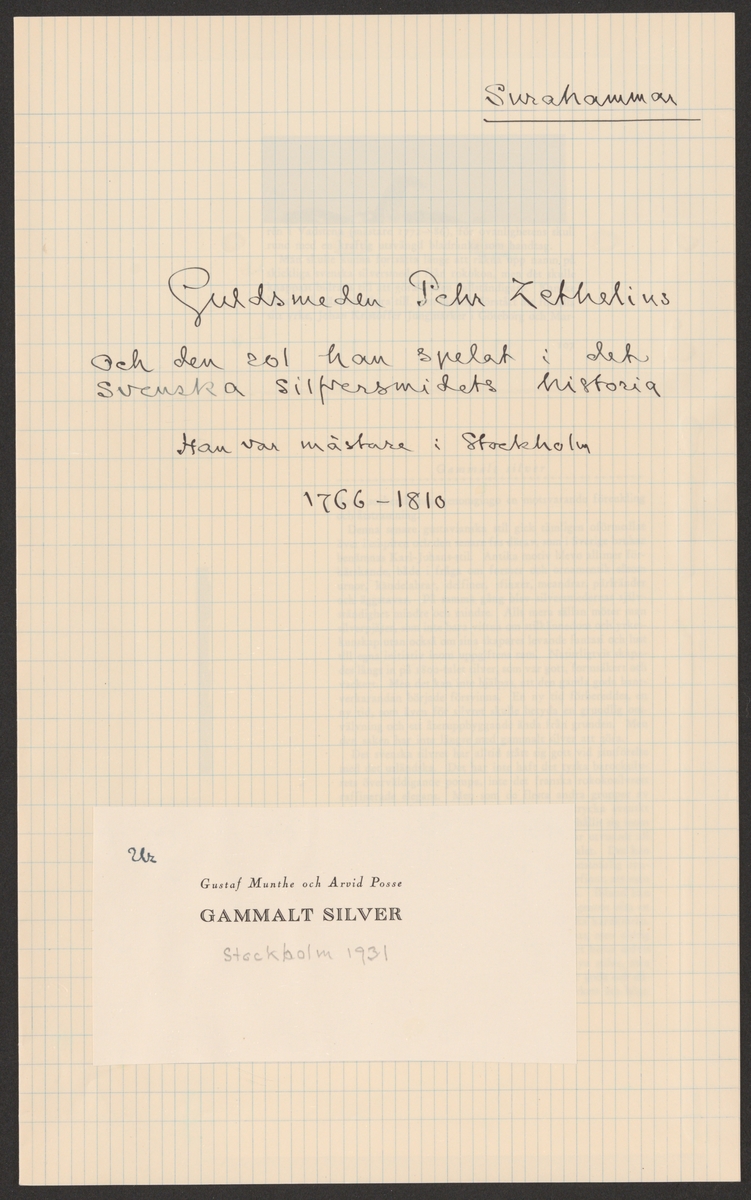 Surahammar
Guldsmeden Pehr Zethelius
och den rol han spelat i det
Svenska silfversmidets historia
Han var mästare i Stockholm
1766-1810
Ur
Gustaf Munthe och Arvid Posse
GAMMALT SILVER
Stockholm 1931